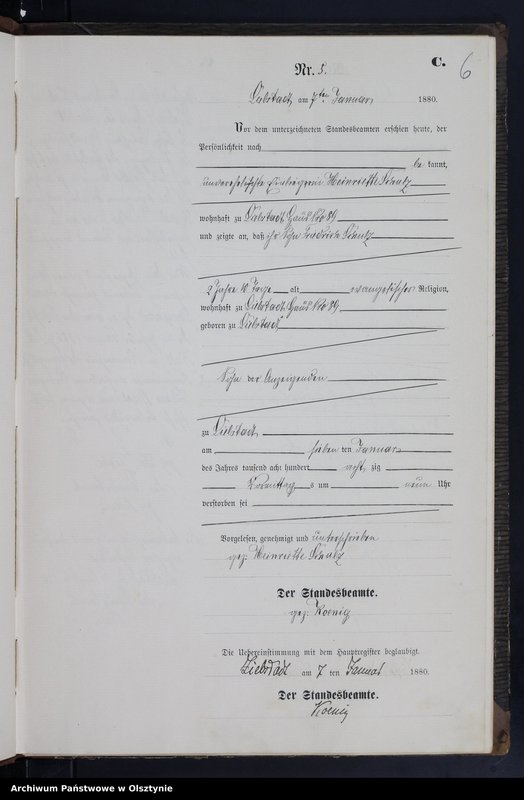 C.
6
Nr. 5.
Liebstadt, am 7ten Januar 1880.
Vor dem unterzeichneten Standesbeamten erschien heute, der
Persönlichkeit nach
be kannt,
unverehelichte Henriette
wohnhaft zu Liebstadt Haus Nro 89
und zeigte an, daß ihr Sohn Friedrich
2 Jahre 10 Tage alt evangelischer Religion,
wohnhaft zu Liebstadt Haus Nro 89,
geboren zu Liebstadt
Sohn der Anzeigenden
zu Liebstadt
am sieben ten Januar
des Jahres tausend acht hundert acht zig
Vormittags um neun Uhr
verstorben sei
Vorgelesen, genehmigt und unterschrieben
gez. Henriette
Der Standesbeamte.
gez. Koenig
Die Uebereinstimmung mit dem Hauptregister beglaubigt.
Liebstadt am 7 ten Januar 1880.
Der Standesbeamte.
Koenig
Archiwum Państwowe w Olsztynie